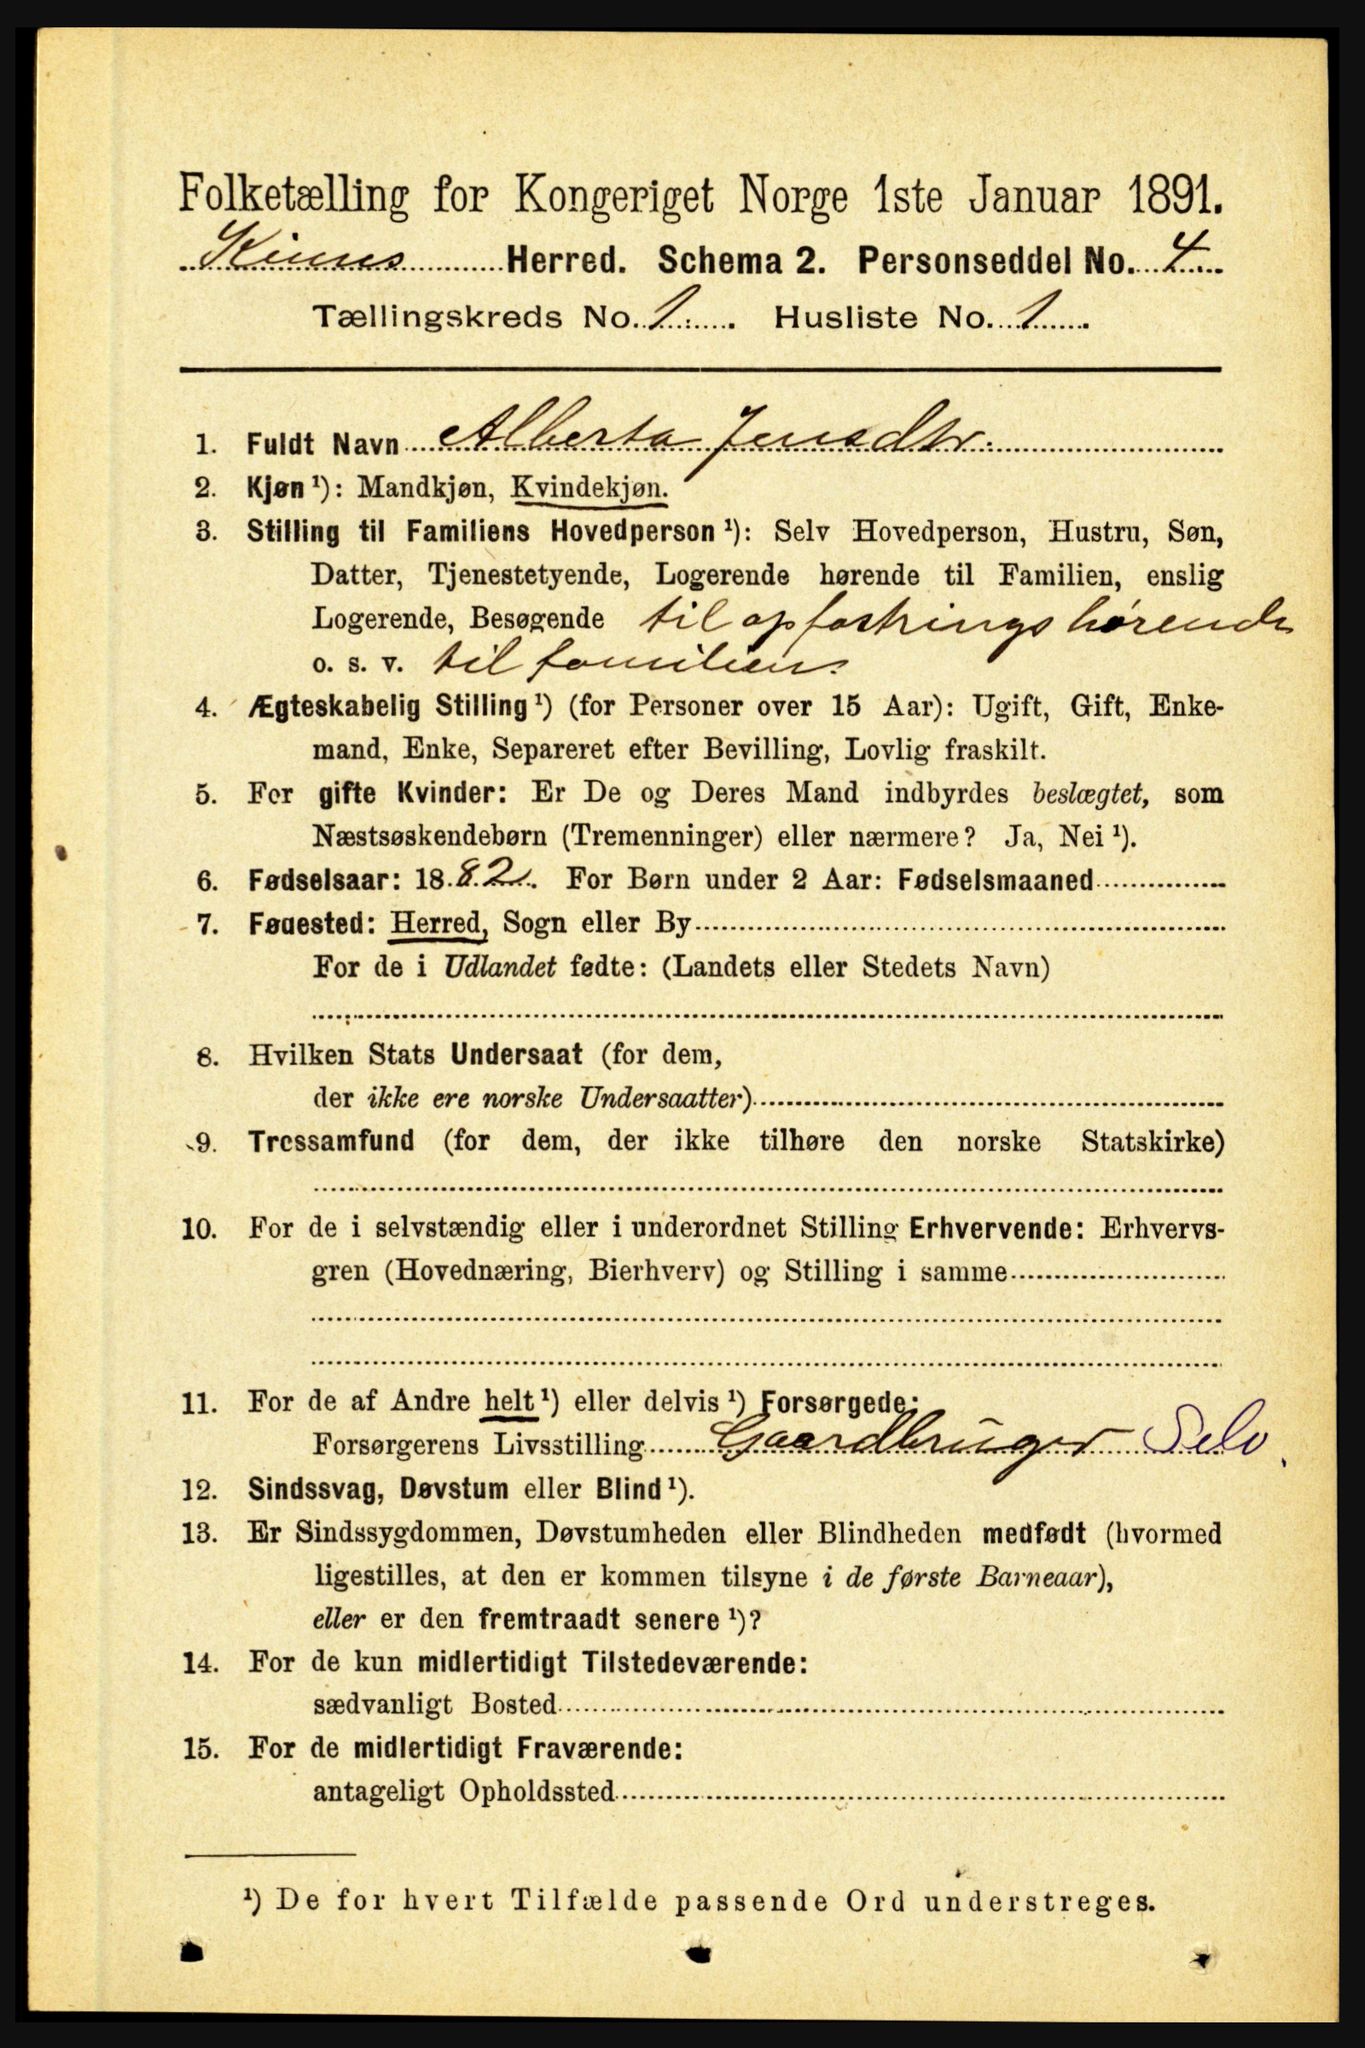 Folketælling for Kongeriget Norge 1ste Januar 1891.
Kinns Herred. Schema 2. Personseddel No. 4
Tællingskreds No. 1. Husliste No. 1
1. Fuldt Navn Alberta Jensdtr.
2. Kjøn¹): Mandkjøn, Kvindekjøn.
3. Stilling til Familiens Hovedperson¹): Selv Hovedperson, Hustru, Søn,
Datter, Tjenestetyende, Logerende hørende til Familien, enslig
Logerende, Besøgende til opfostrings hørende
o. s. v. til familien.
4. Ægteskabelig Stilling¹) (for Personer over 15 Aar): Ugift, Gift, Enke-
mand, Enke, Separeret efter Bevilling, Lovlig fraskilt.
5. For gifte Kvinder: Er De og Deres Mand indbyrdes beslægtet, som
Næstsøskendebørn (Tremenninger) eller nærmere? Ja, Nei¹).
6. Fødselsaar: 1882. For Børn under 2 Aar: Fødselsmaaned
7. Fødested: Herred, Sogn eller By
For de i Udlandet fødte: (Landets eller Stedets Navn)
8. Hvilken Stats Undersaat (for dem,
der ikke ere norske Undersaatter)
9. Trossamfund (for dem, der ikke tilhøre den norske Statskirke)
10. For de i selvstændig eller i underordnet Stilling Erhvervende: Erhvervs-
gren (Hovednæring, Bierhverv) og Stilling i samme
11. For de af Andre helt¹) eller delvis¹) Forsørgede:
Forsørgerens Livsstilling Gaardbruger Selv
12. Sindssvag, Døvstum eller Blind¹).
13. Er Sindssygdommen, Døvstumheden eller Blindheden medfødt (hvormed
ligestilles, at den er kommen tilsyne i de første Barneaar),
eller er den fremtraadt senere¹)?
14. For de kun midlertidigt Tilstedeværende:
sædvanligt Bosted
15. For de midlertidigt Fraværende:
antageligt Opholdssted
¹) De for hvert Tilfælde passende Ord understreges.